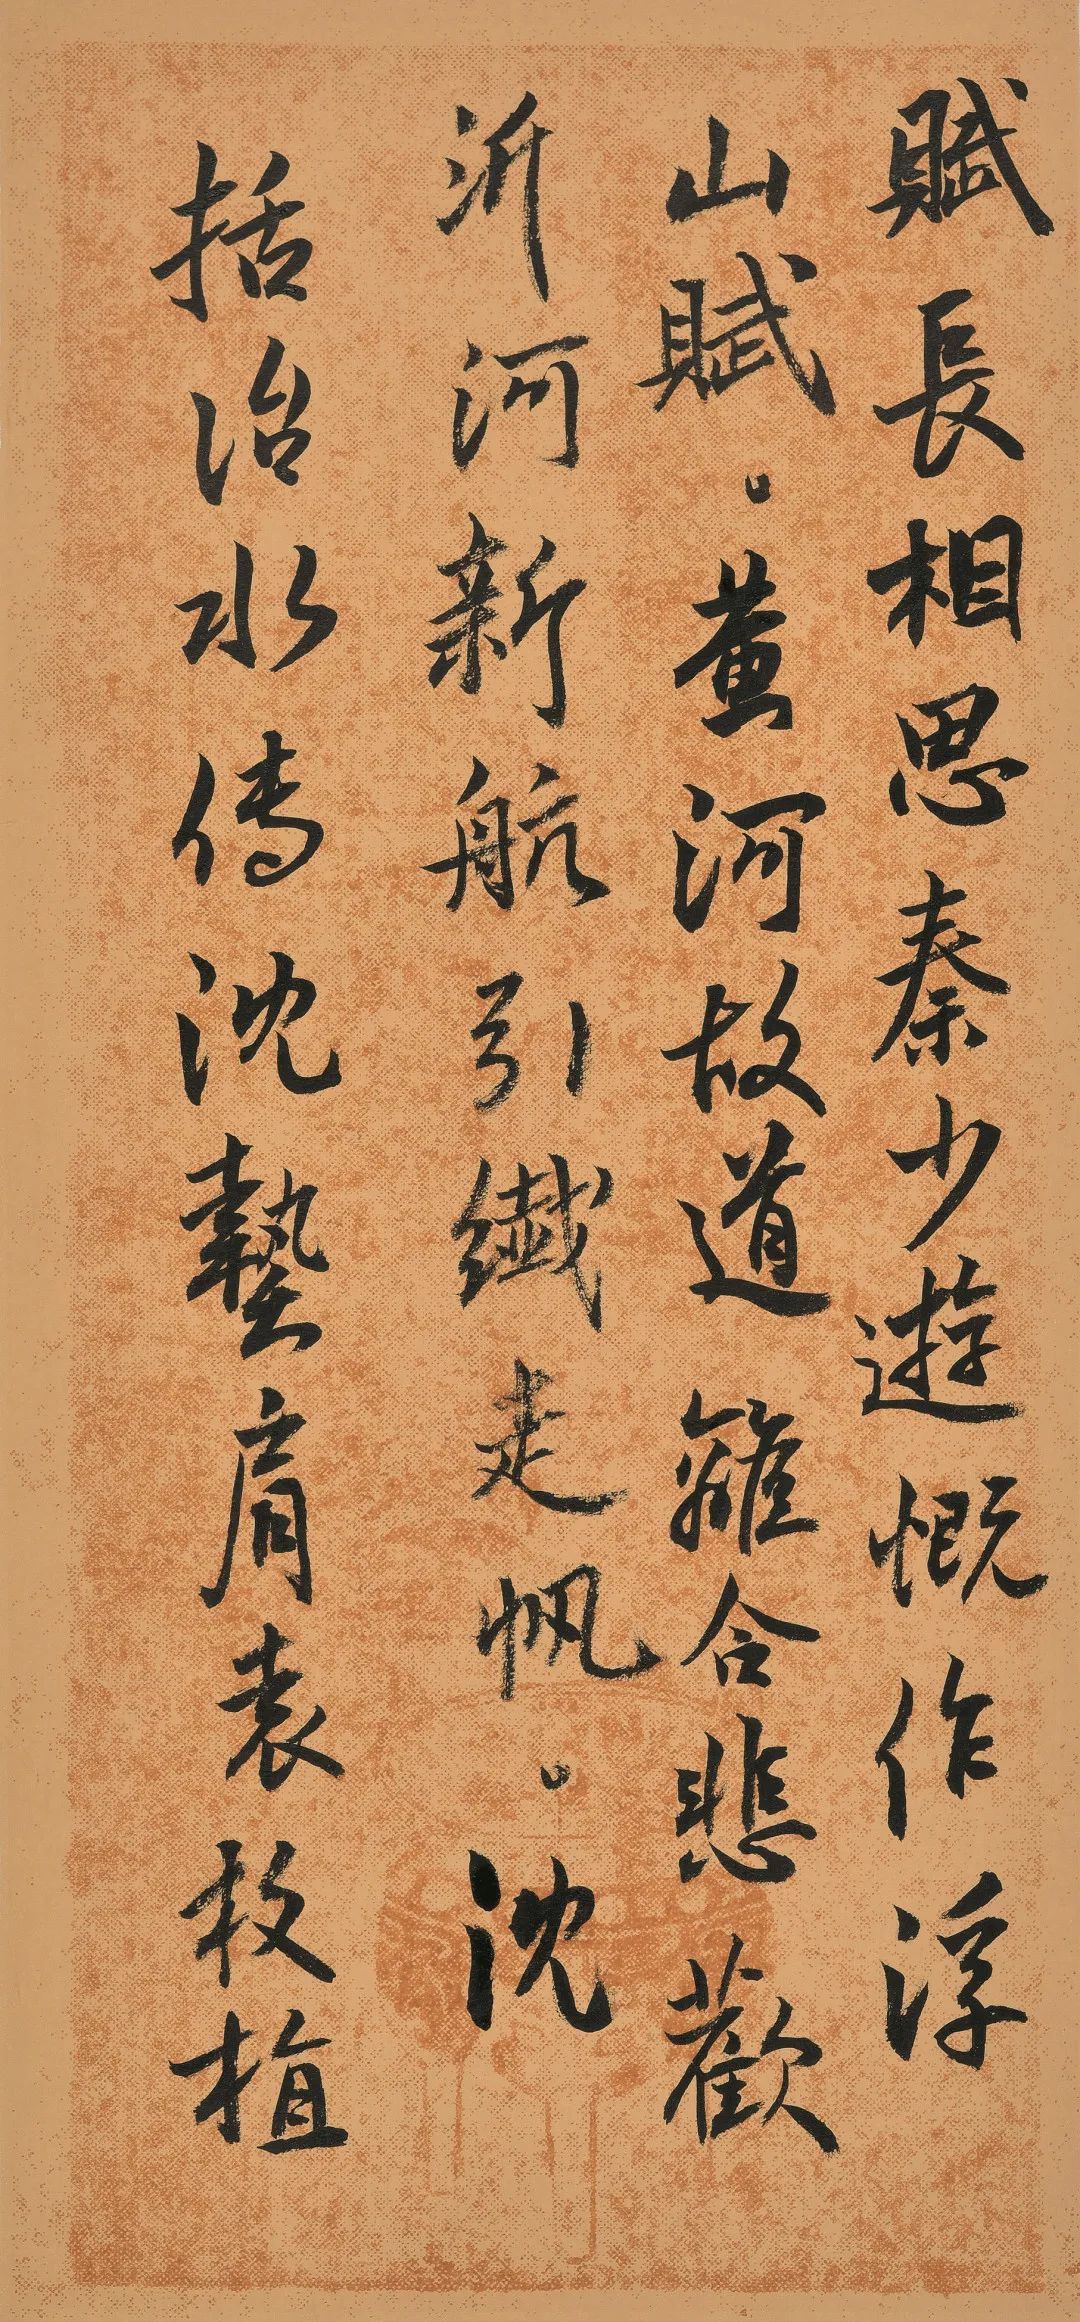 賦長相思秦少遊慨作浮
山賦。黄河故道離合悲歡
沂河新航引纖走帆。沈
括治水傳沈藝肩袁枚植